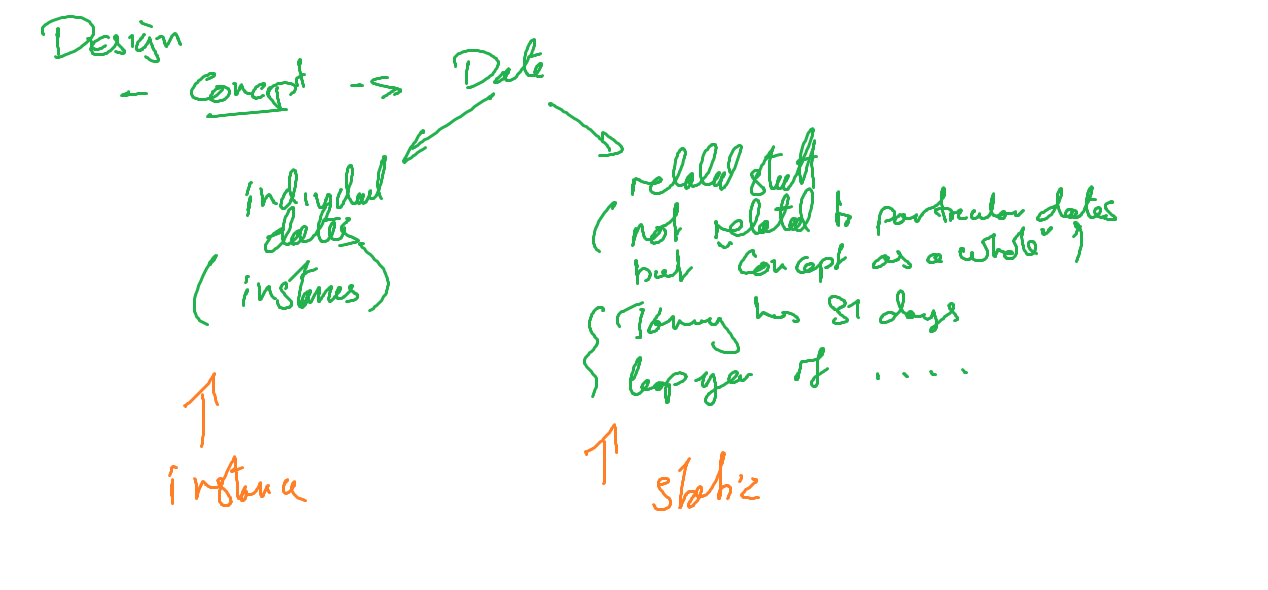 Design
- Concept -> Date
individual
dates
(instances)
related stuff
(not related to particular dates
but "concept as a whole")
{ January has 31 days
leap year if ....
instance
static